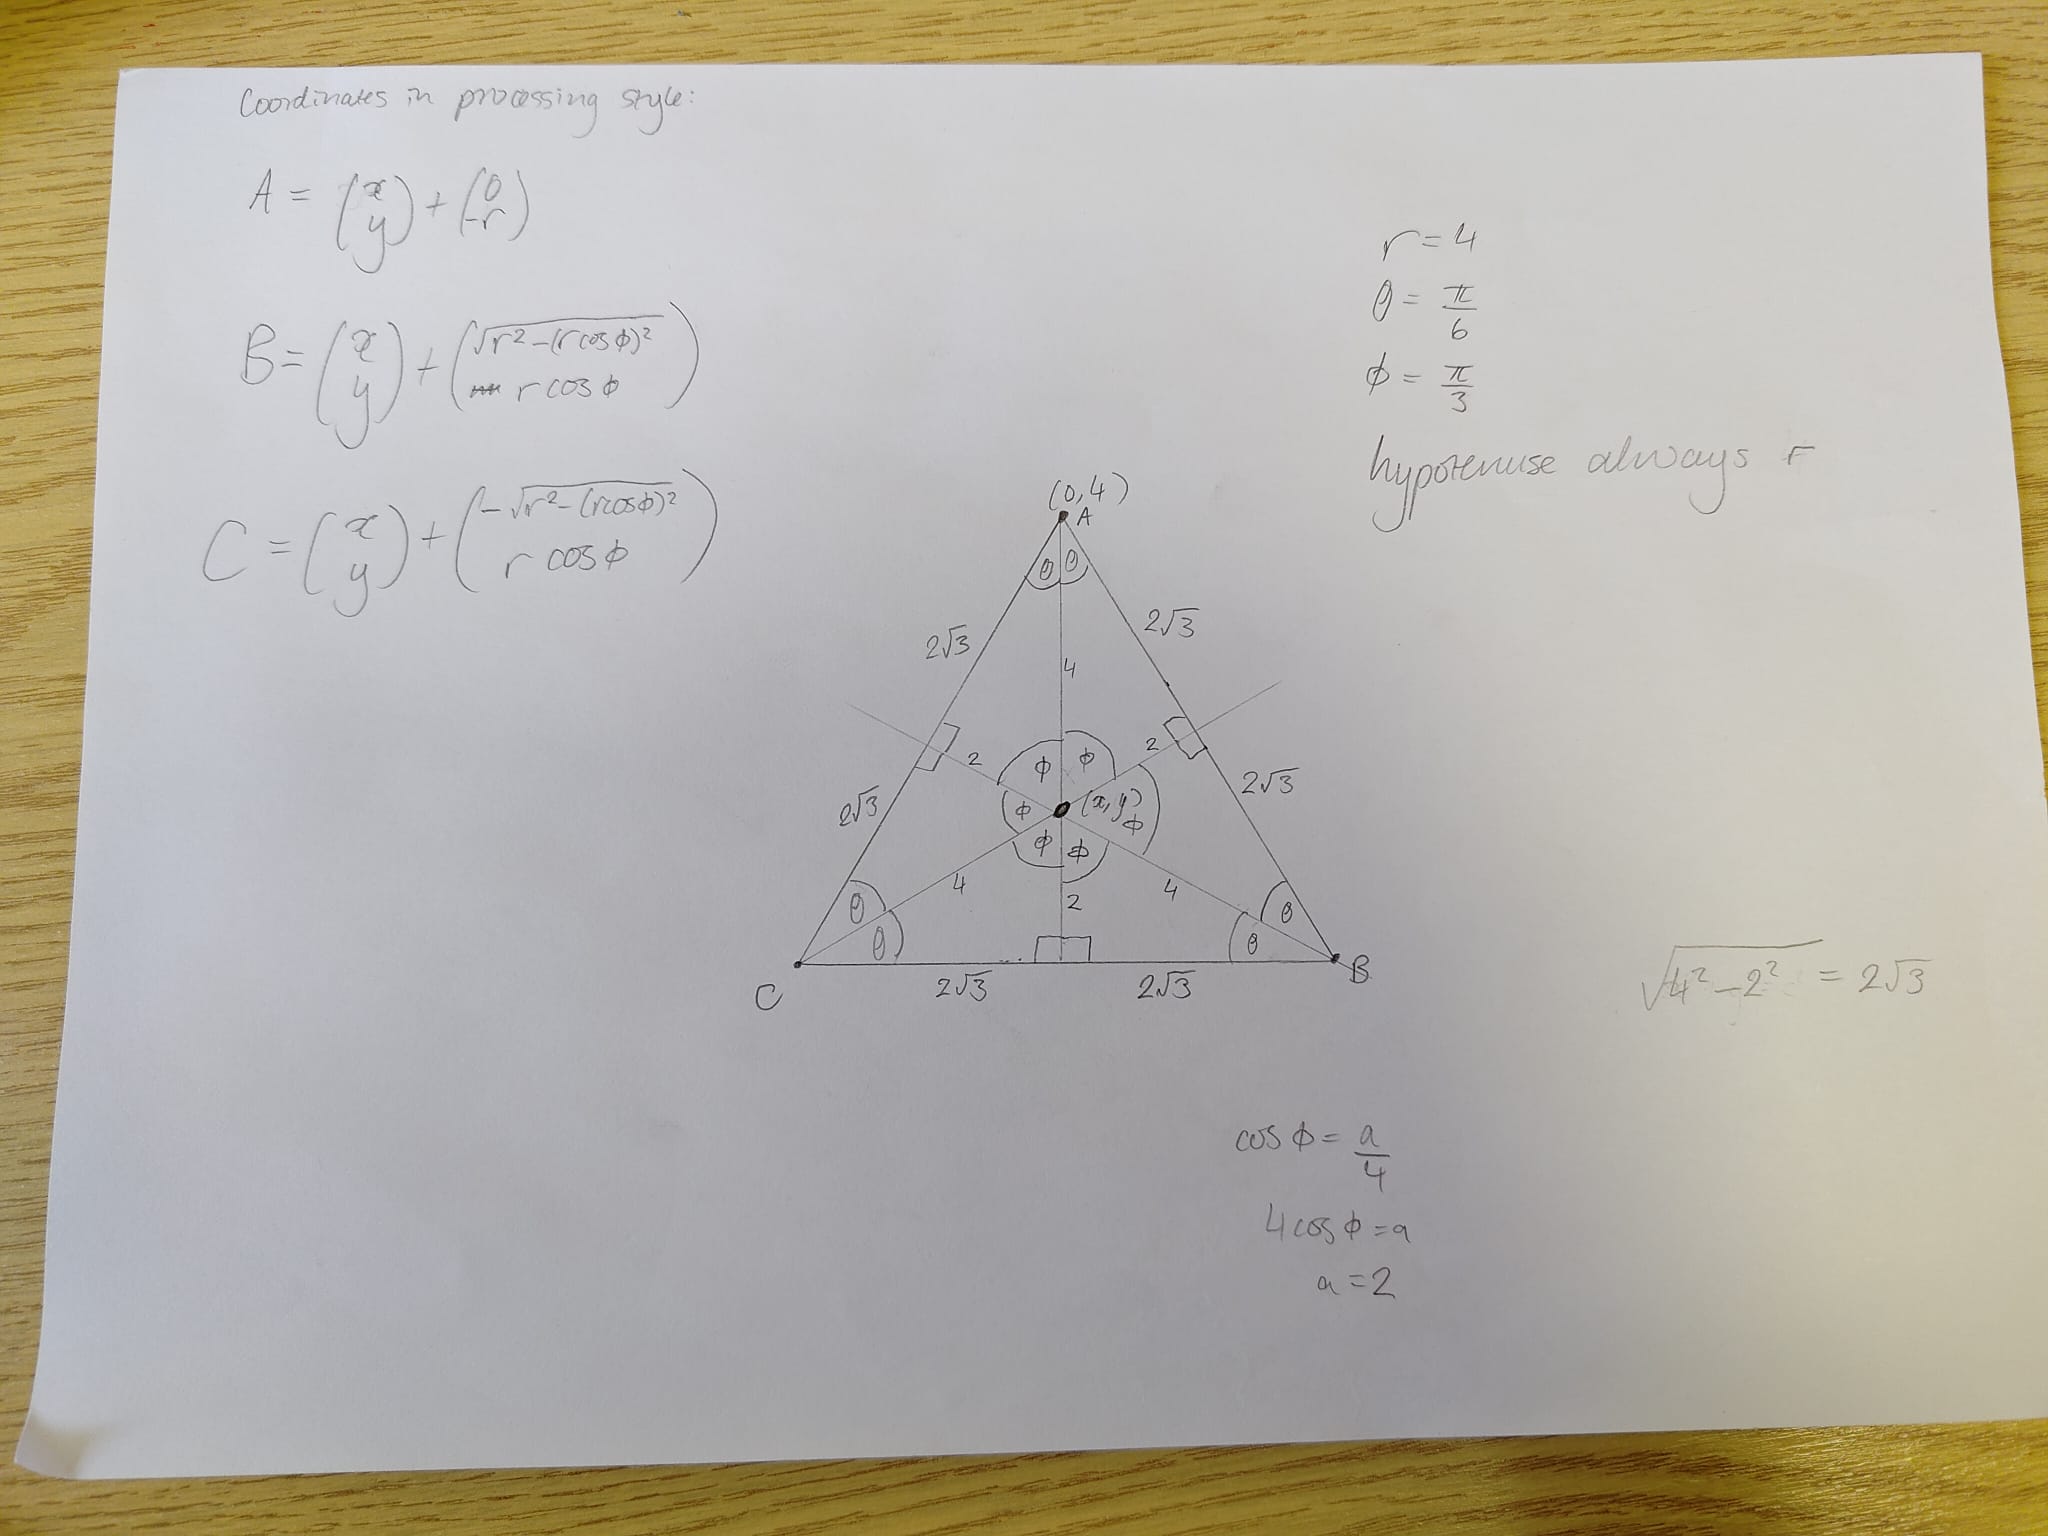 Coordinates in processing style:
A = (x y) + (0 -r)
B = (x y) + (√r² - (r cos ϕ)² r cos ϕ)
C = (x y) + (-√r² - (r cos ϕ)² r cos ϕ)
r = 4
θ = π/6
ϕ = π/3
hypotenuse always r
(0,4)
A
θ θ
2√3 2√3
4
2 ϕ ϕ 2
2√3 ϕ (x, y) ϕ 2√3
ϕ ϕ
4 2 4
θ θ
θ θ
C 2√3 2√3 B
√4² - 2² = 2√3
cos ϕ = a/4
4 cos ϕ = a
a = 2